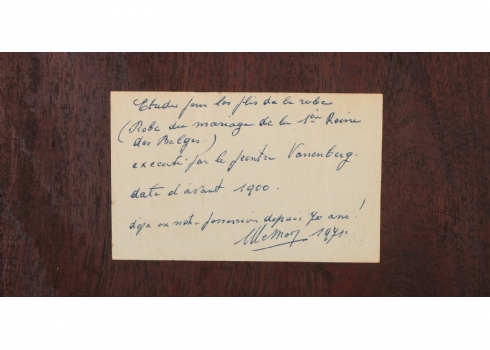 Etude pour les plis de la robe
(Robe du mariage de la 1ère Reine
des Belges.)
executé par le peintre Vanenberg.
date d'avant 1900.
déja en notre possession depuis 70 ans!
1971.